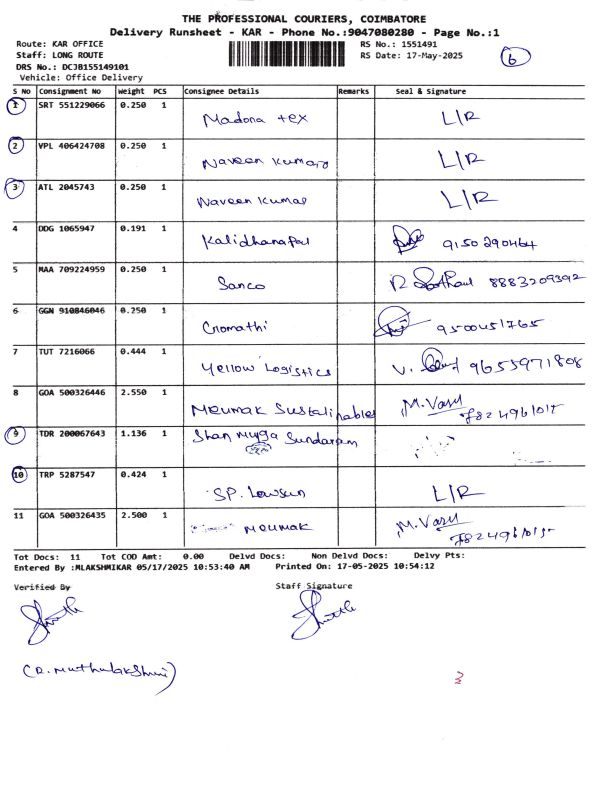 THE PROFESSIONAL COURIERS, COIMBATORE
Delivery Runsheet - KAR - Phone No.:9047080280 - Page No.:1
Route: KAR OFFICE RS No.: 1551491
Staff: LONG ROUTE RS Date: 17-May-2025 6
DRS No.: DCJB155149101
Vehicle: Office Delivery
S No Consignment No Weight PCS Consignee Details Remarks Seal & Signature
1 SRT 551229066 0.250 1 Madona tex L/R
2 VPL 406424708 0.250 1 Naveen Kumar L/R
3 ATL 2045743 0.250 1 Naveen Kumar L/R
4 DDG 1065947 0.191 1 Kalidhanapal 9150290464
5 MAA 709224959 0.250 1 Sanco 8883209392
6 GGN 910846046 0.250 1 Cromathi 9500451765
7 TUT 7216066 0.444 1 Yellow Logistics V. 9655971808
8 GOA 500326446 2.550 1 Meumak Sustainables M. Vasu
9 TDR 200067643 1.136 1 Shan Muga Sundaram
10 TRP 5287547 0.424 1 SP. Lawsun L/R
11 GOA 500326435 2.500 1 Meumak M. Vasu
Tot Docs: 11 Tot COD Amt: 0.00 Delvd Docs: Non Delvd Docs: Delvy Pts:
Entered By :MLAKSHMIKAR 05/17/2025 10:53:40 AM Printed On: 17-05-2025 10:54:12
Verified By Staff Signature
(R. Muthulakshmi)